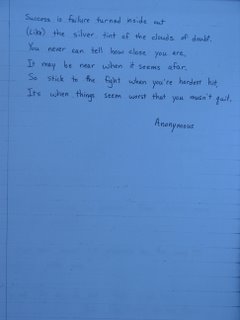 Success is failure turned inside out
(Like) the silver tint of the clouds of doubt.
You never can tell how close you are,
It may be near when it seems afar.
So stick to the fight when you're hardest hit,
It's when things seem worst that you musn't quit.
Anonymous